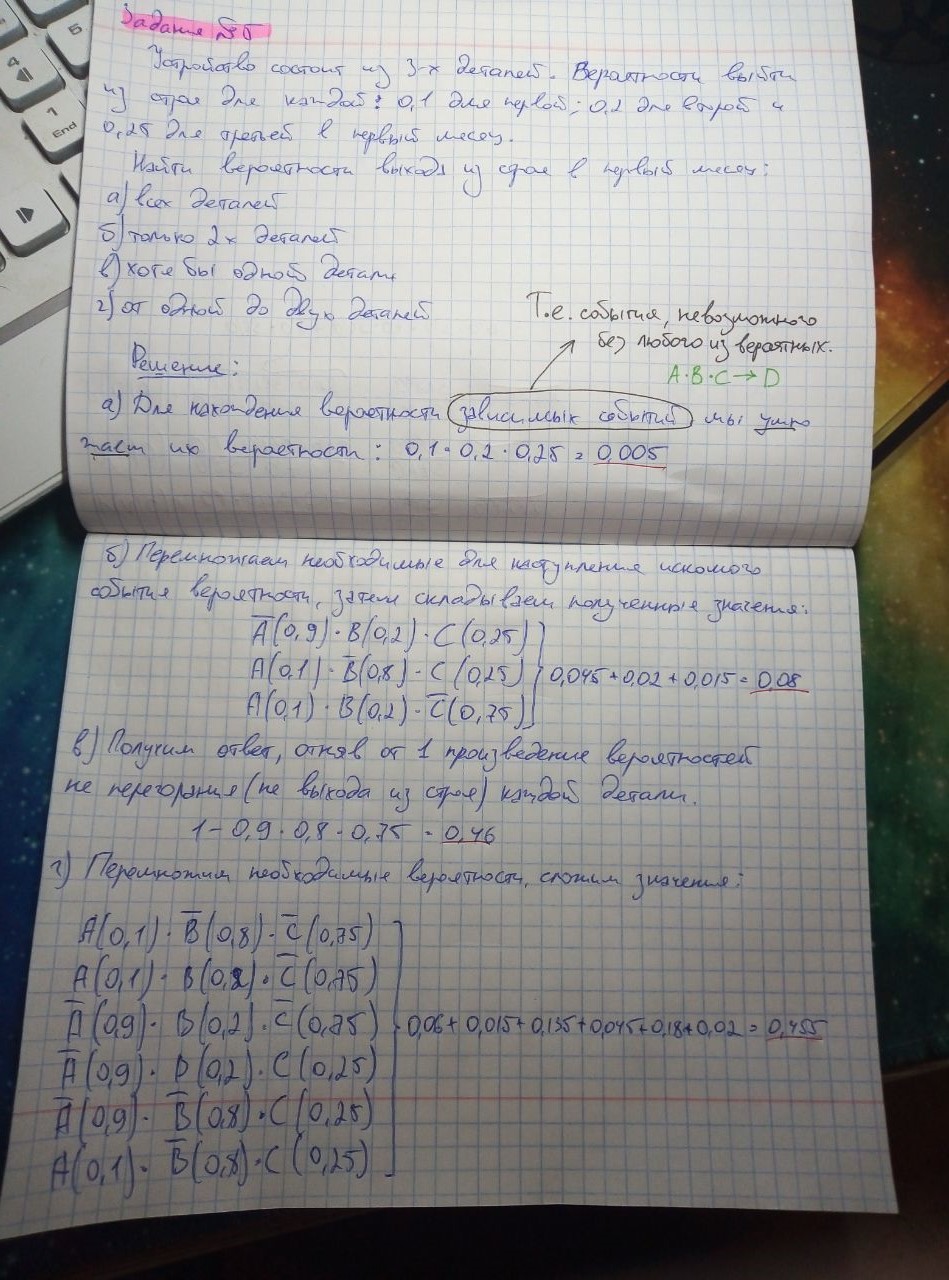 4
5
1
End
Задание №5
Устройство состоит из 3-х деталей. Вероятности выйти
из строя для каждой: 0,1 для первой; 0,2 для второй и
0,25 для третьей в первый месяц.
Найти вероятности выхода из строя в первый месяц:
а) всех деталей
б) только 2х деталей
в) хотя бы одной детали
г) от одной до двух деталей
Т.е. события, невозможного
без любого из вероятных.
A·B·C→D
Решение:
а) Для нахождения вероятности зависимых событий мы умно
жаем их вероятности: 0,1·0,2·0,25 = 0,005
б) Перемножаем необходимые для наступления искомого
события вероятности, затем складываем полученные значения:
A̅(0,9)·B(0,2)·C(0,25)
A(0,1)·B̅(0,8)·C(0,25) 0,045+0,02+0,015=0,08
A(0,1)·B(0,2)·C̅(0,75)
в) Получим ответ, отняв от 1 произведение вероятностей
не перегорания (не выхода из строя) каждой детали.
1-0,9·0,8·0,75 = 0,46
г) Перемножим необходимые вероятности, сложим значения:
A(0,1)·B̅(0,8)·C̅(0,75)
A(0,1)·B(0,2)·C̅(0,75)
A̅(0,9)·B(0,2)·C̅(0,75) 0,06+0,015+0,135+0,045+0,18+0,02=0,455
A̅(0,9)·B(0,2)·C(0,25)
A̅(0,9)·B̅(0,8)·C(0,25)
A(0,1)·B̅(0,8)·C(0,25)